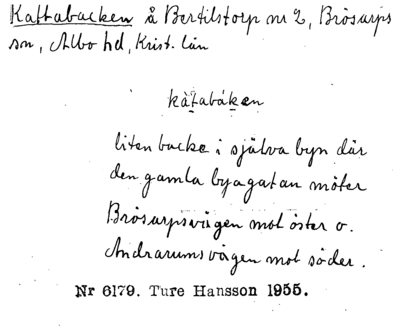 Kattabacken å Bertilstorp nr 2, Brösarps
sn, Albo hd, Krist. län
kàtabáken
liten backe i själva byn där
den gamla byagatan möter
Brösarpsvägen mot öster o.
Andrarumsvägen mot söder.
Nr 6179. Ture Hansson 1955.